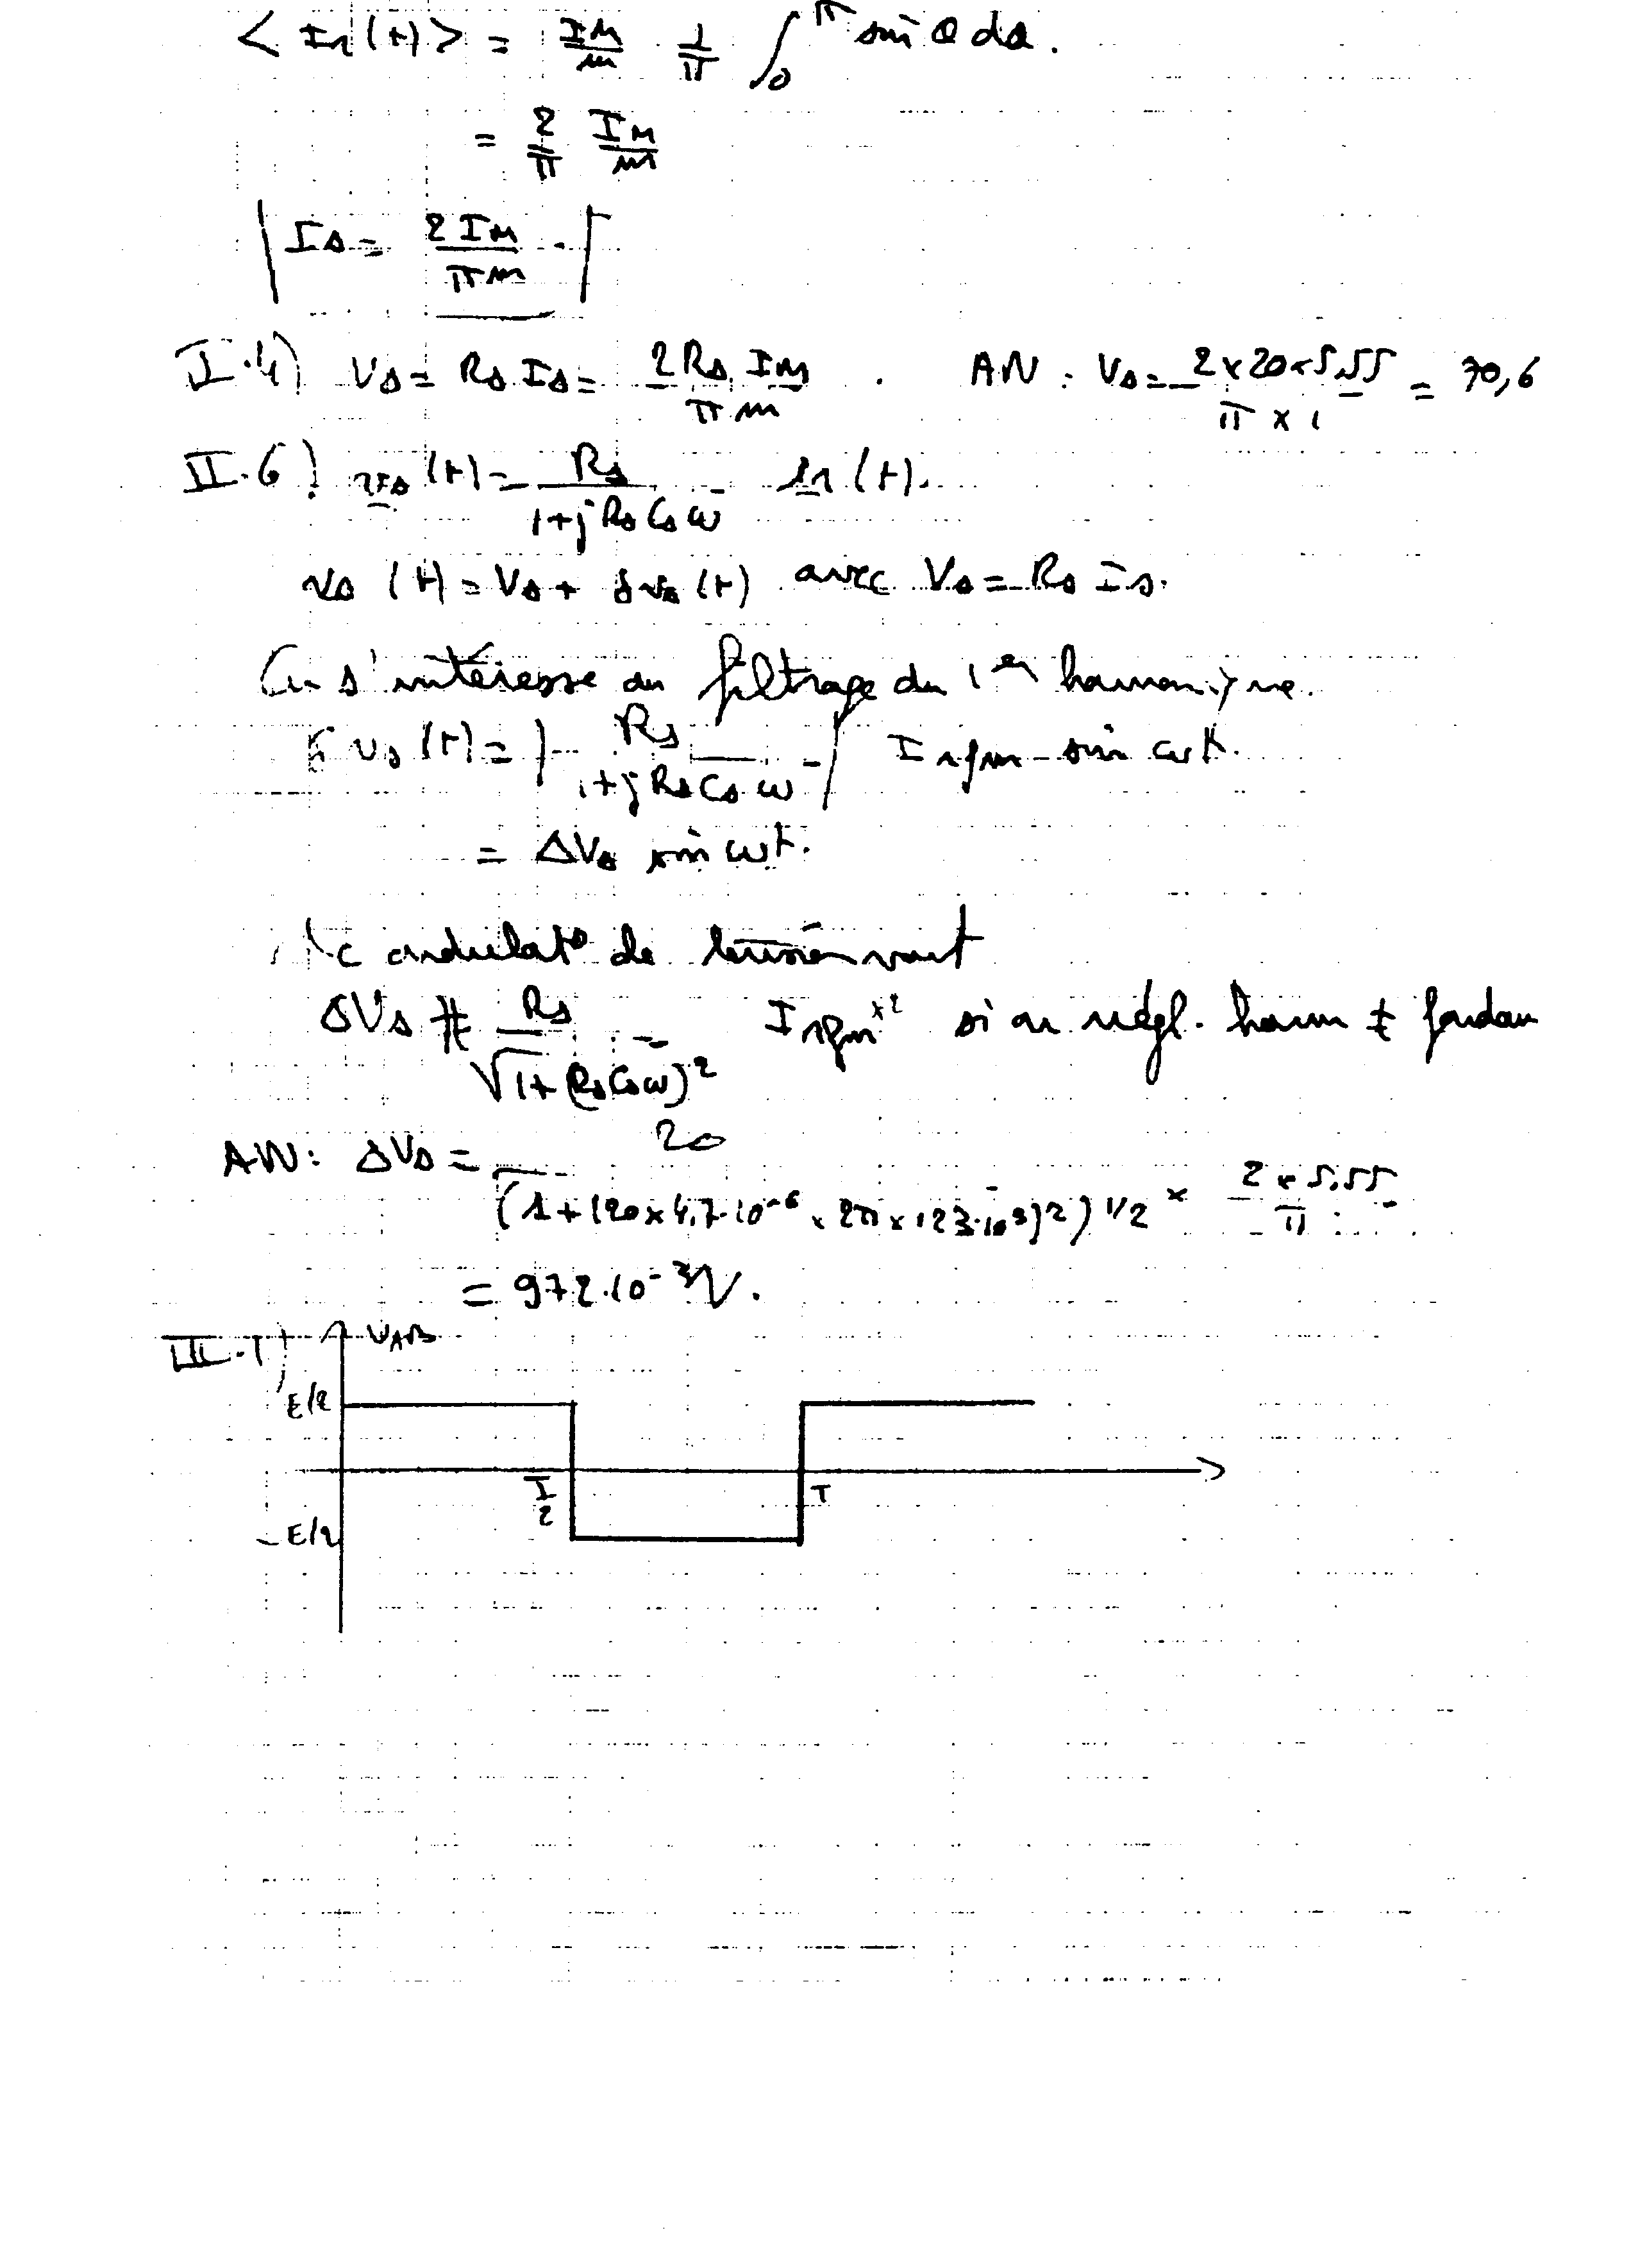 < I_r(t) > = I_M/m 1/π ∫_0^π sin θ dθ.
= 2/π I_M/m
Is = 2 I_M / πm .
II.4) Vs = Rs Is = 2Rs I_M / πm . AN : Vs = 2 x 20 x 5,55 / π x 1 = 70,6
II.6) vs(t) = Rs / 1+jRsCsω ir(t).
vs(t) = Vs + δvs(t) avec Vs = Rs Is.
On s'intéresse au filtrage du 1er harmonique.
δvs(t) = | Rs / 1+jRsCsω | Irfm sin ωt.
= ΔVs sin ωt.
ondulat° de tension vaut
ΔVs # Rs / √1+(RsCsω)² Irfm x2 si on négl. harm ≠ fondam
AN : ΔVs = 20 / (1+(20 x 4,7.10^-6 x 2π x 123.10^3)²)^1/2 x 2 x 5,55 / π
= 972.10^-3 V.
III.1) VAB
E/2
T/2 T
-E/2